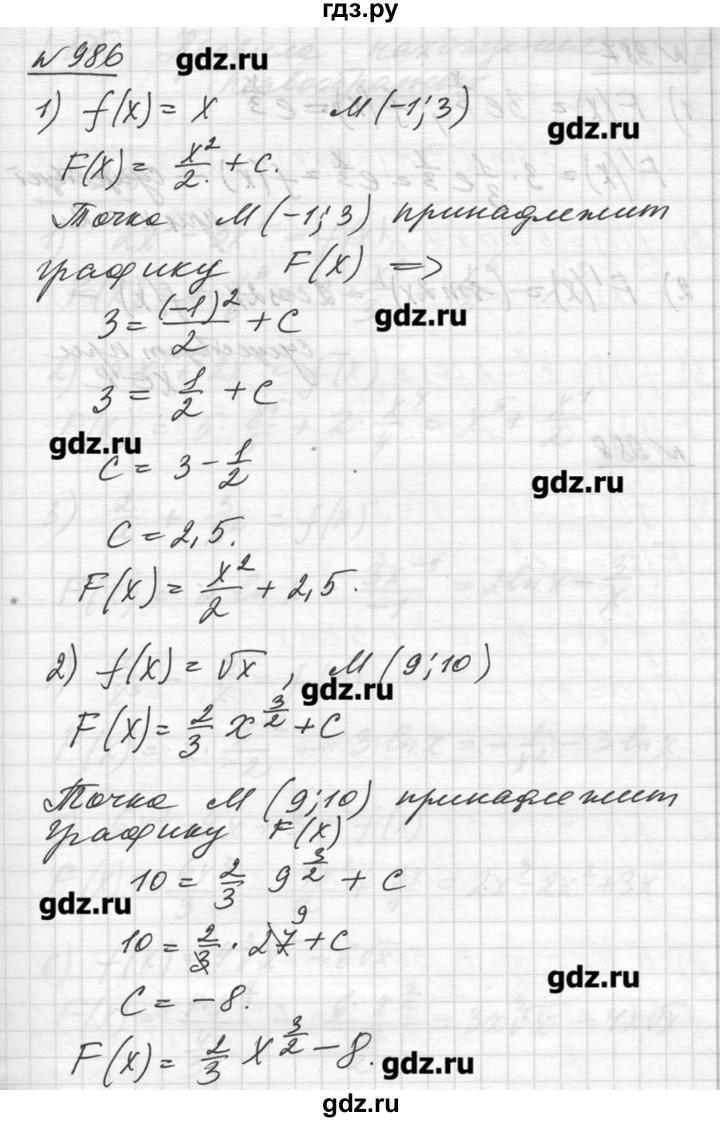 гдз.ру
№986 gdz.ru
1) f(x) = x M(-1; 3)
gdz.ru
F(x) = x²/2 + C.
Точка M(-1; 3) принадлежит
графику F(x) =>
3 = (-1)²/2 + C gdz.ru
3 = 1/2 + C
gdz.ru
C = 3 - 1/2
gdz.ru
C = 2,5.
F(x) = x²/2 + 2,5.
2) f(x) = √x, M(9; 10)
gdz.ru
F(x) = 2/3 x^(3/2) + C
Точка M(9; 10) принадлежит
графику F(x)
10 = 2/3 9^(3/2) + C
gdz.ru
9
10 = 2/3 · 27 + C
gdz.ru
C = -8.
F(x) = 2/3 x^(3/2) - 8.
gdz.ru
gdz.ru